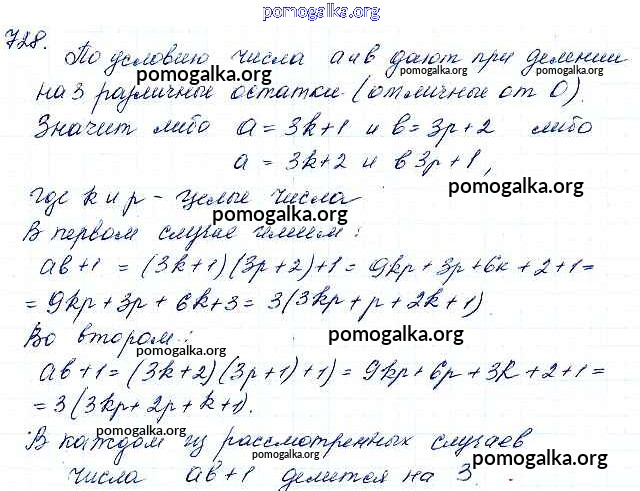 pomogalka.org
728.
По условию числа a и в дают при делении
pomogalka.org pomogalka.org pomogalka.org
на 3 различные остатки (отличные от 0).
Значит либо a = 3k+1 и в = 3p+2 либо
a = 3k+2 и в 3p+1,
pomogalka.org
где k и p - целые числа
pomogalka.org
В первом случае имеем:
ab+1 = (3k+1)(3p+2)+1 = 9kp+3p+6k+2+1=
= 9kp+3p+6k+3 = 3(3kp+p+2k+1)
Во втором:
pomogalka.org pomogalka.org
ab+1=(3k+2)(3p+1)+1) = 9kp+6p+3k+2+1=
= 3(3kp+2p+k+1).
pomogalka.org
В каждом из рассмотренных случаев
числа ab+1 делится на 3.
pomogalka.org